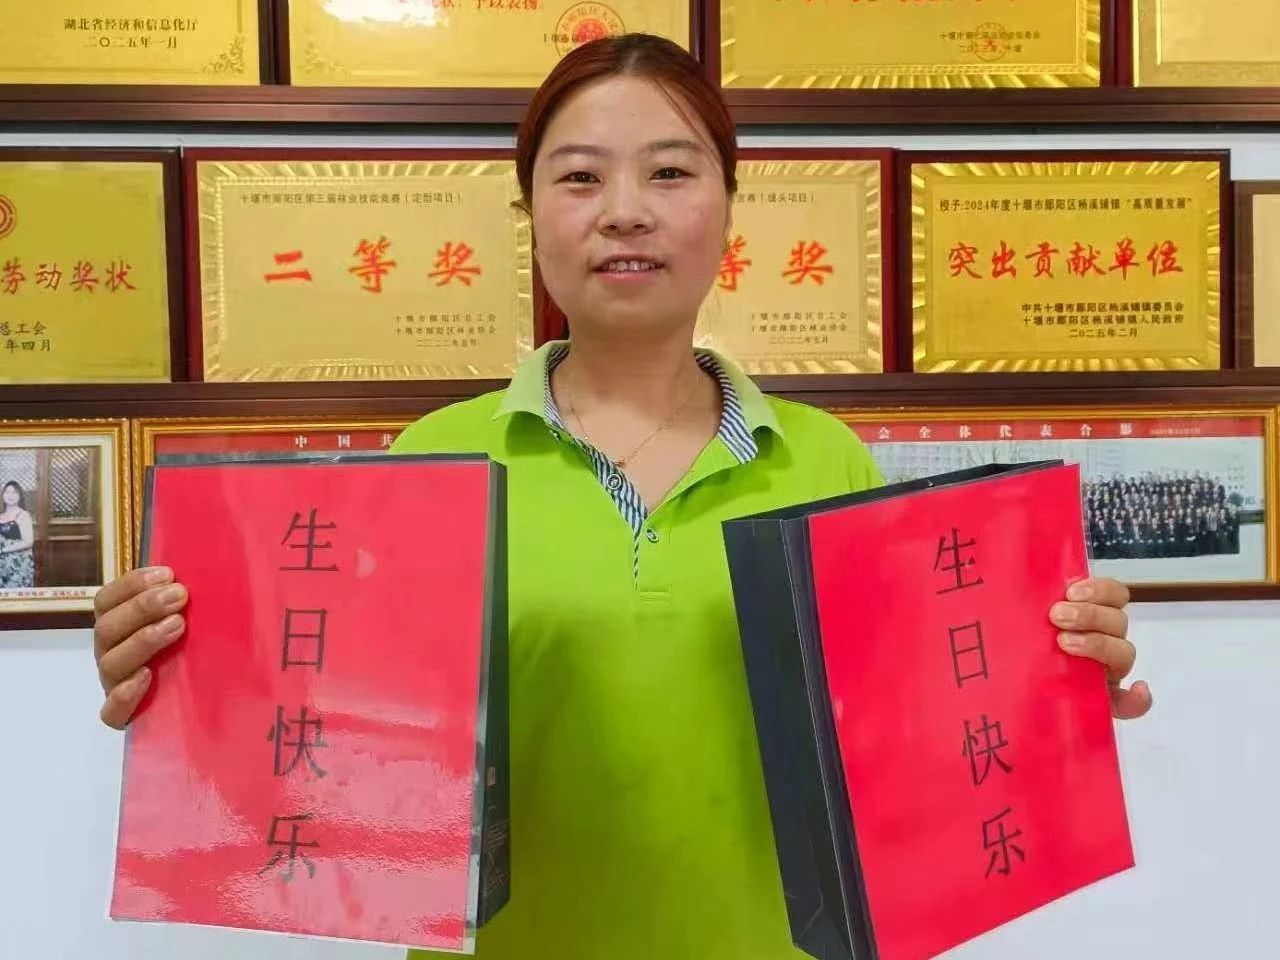 湖北省经济和信息化厅
二〇二五年一月
予以表扬
劳动奖状
总工会
年四月
十堰市郧阳区第三届袜业技能竞赛(定型项目)
二等奖
十堰市郧阳区总工会
十堰市郧阳区袜业协会
二〇二二年五月
竞赛(缝头项目)
等奖
十堰市郧阳区总工会
十堰市郧阳区袜业协会
二〇二二年五月
授予:2024年度十堰市郧阳区杨溪铺镇“高质量发展”
突出贡献单位
中共十堰市郧阳区杨溪铺镇委员会
十堰市郧阳区杨溪铺镇人民政府
二〇二五年二月
中国共
会全体代表合影
生日快乐
生日快乐